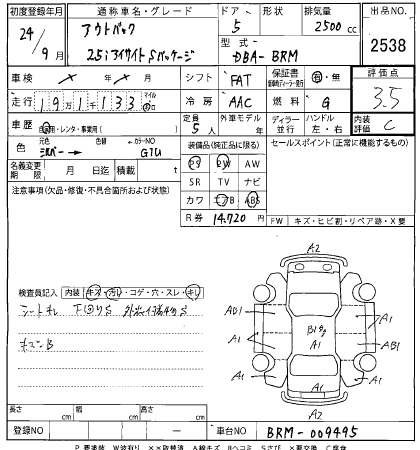 初度登録年月 通称車名・グレード ドア 形状 排気量 出品NO.
24/9月 アウトバック 5 2500cc 2538
2.5i アイサイト Sパッケージ 型式 DBA-BRM
車検 シフト FAT 保証書 有・無 評価点
走行 19万1千133 マイル 冷房 AAC 燃料 G 3.5
車歴 自家用・レンタ・事業用( ) 定員 5人 外車モデル年 ディーラー 並行 ハンドル 左・右 内装評価 C
色 元色 シルバー 色替 カラーNO G1U
装備品(純正品に限る) セールスポイント(正常に機能するもの)
名義変更期限 月 日迄 積載 t PS PW AW
注意事項(欠品・修復・不具合箇所および状態) SR TV ナビ
カワ エアB ABS
R券 14.720円 FW キズ・ヒビ割・リペア跡・X要
検査員記入 内装 キズ・汚レ・コゲ・穴・スレ・キレ
シートキレ
ホスンB
A2
A1
A1
A1
A1
A1
AB1
A1
A1
A1
A2
長さ cm 幅 cm 高さ cm
登録NO 車台NO BRM-009495
P要塗装 W波有り XX取替済 A線キズ Bヘコミ Sさび X要交換 C腐食